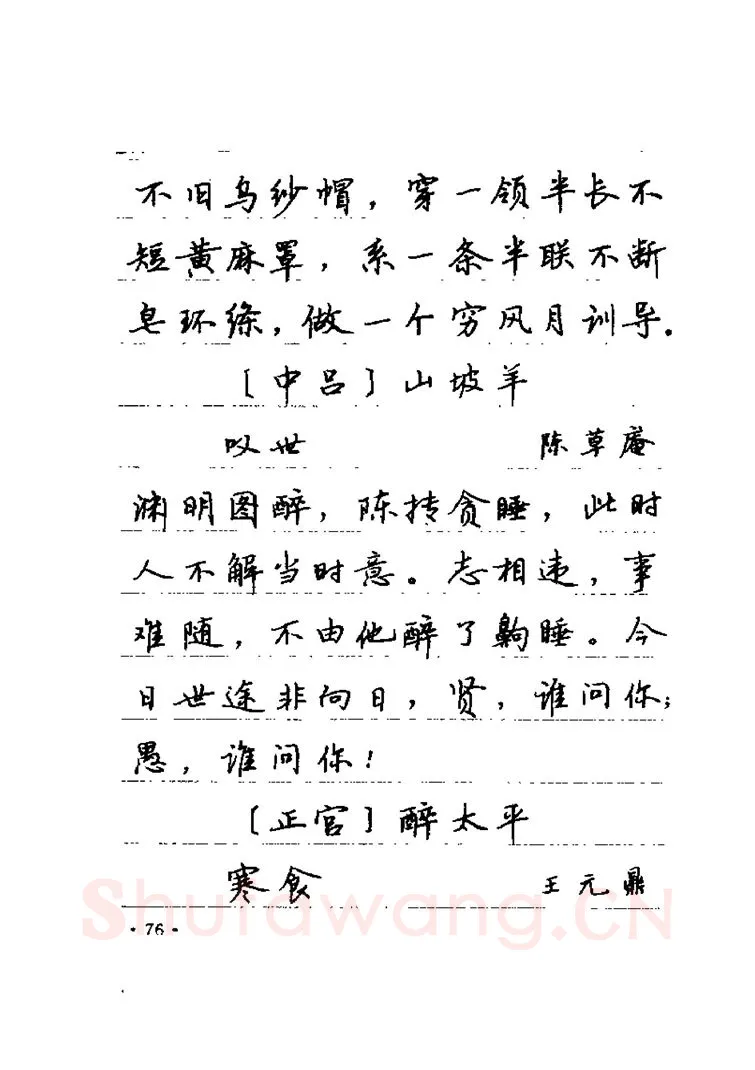 不旧乌纱帽，穿一领半长不
短黄麻罩，系一条半联不断
皂环绦，做一个穷风月训导。
［中吕］山坡羊
叹世 陈草庵
渊明图醉，陈抟贪睡，此时
人不解当时意。志相违，事
难随，不由他醉了齁睡。今
日世途非向日，贤，谁问你；
愚，谁问你！
［正宫］醉太平
寒食 王元鼎
Shufawang.CN
·76·